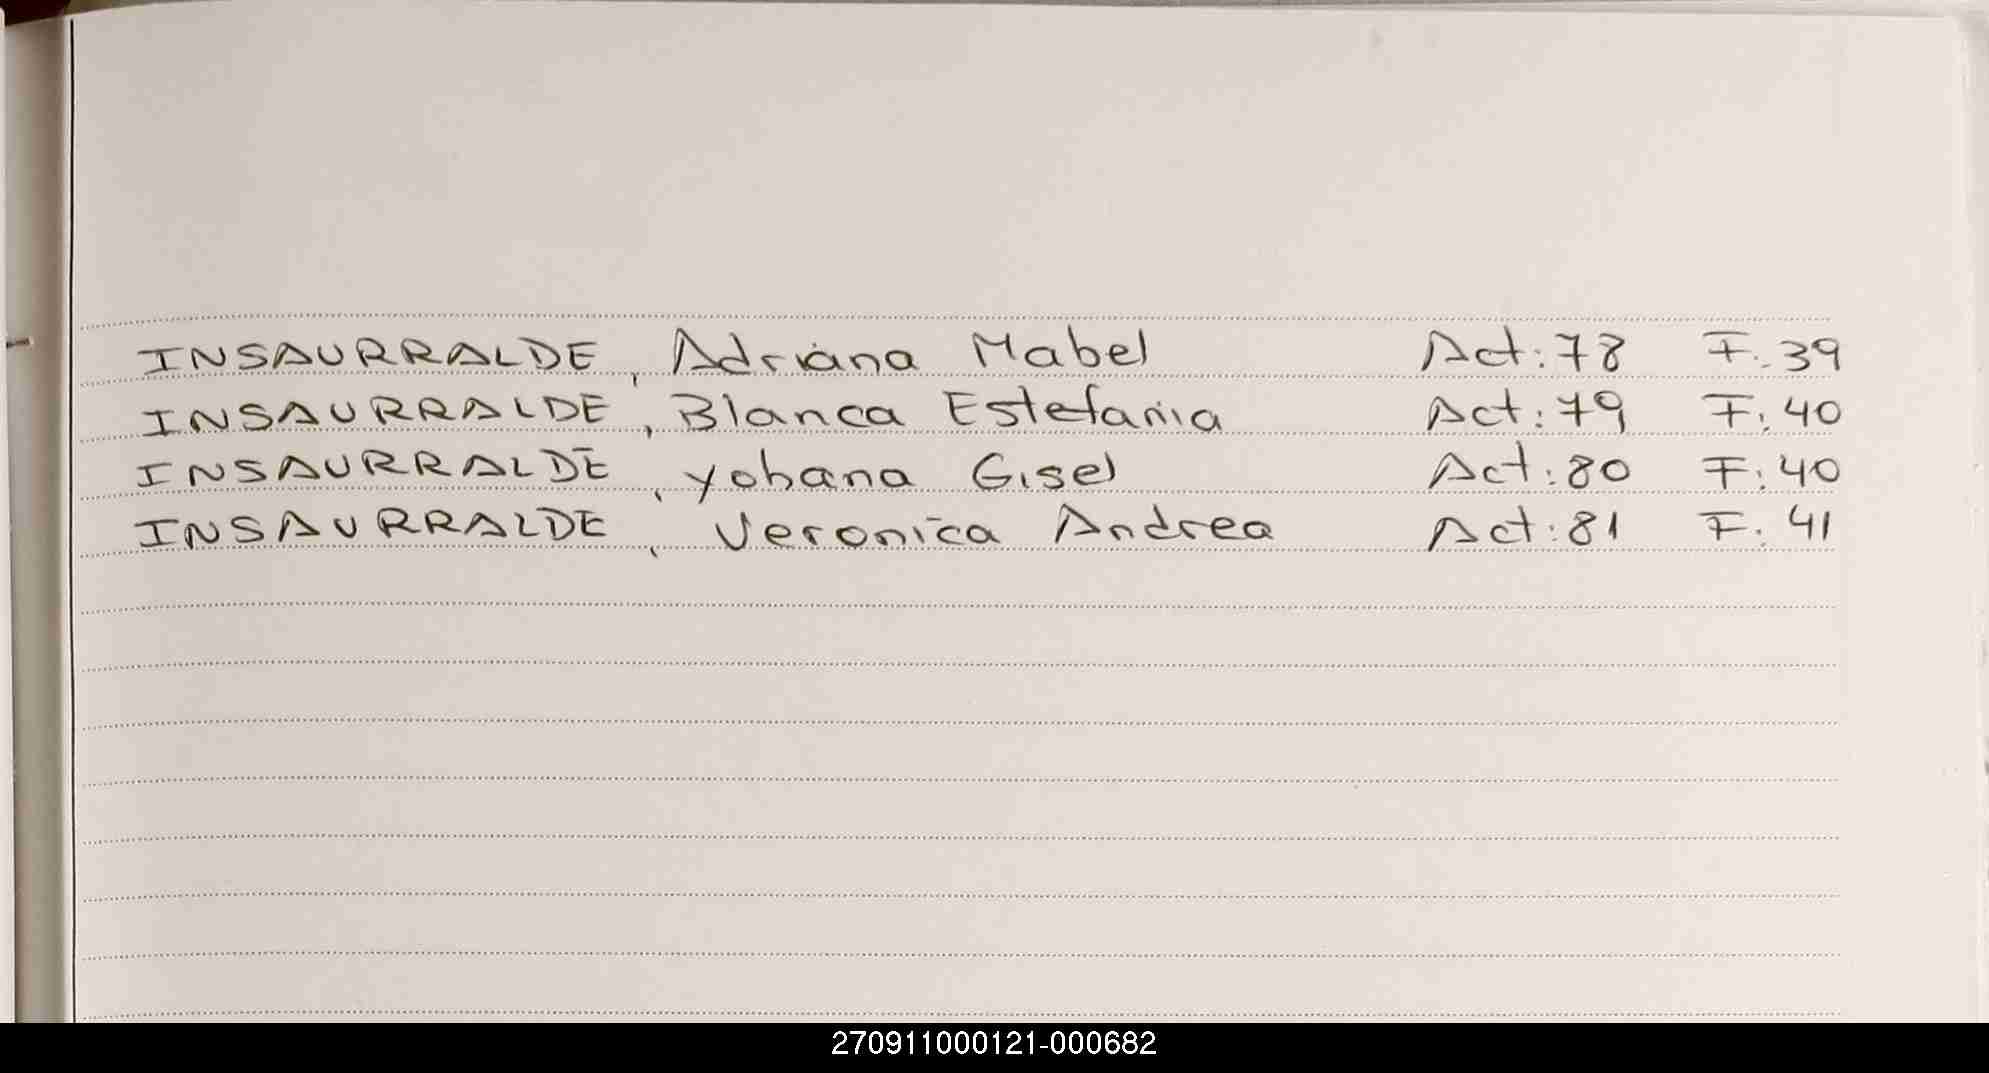 INSAURRALDE, Adriana Mabel Act: 78 F. 39
INSAURRALDE, Blanca Estefania Act: 79 F. 40
INSAURRALDE, Yohana Gisel Act: 80 F. 40
INSAURRALDE, Veronica Andrea Act: 81 F. 41
270911000121-000682